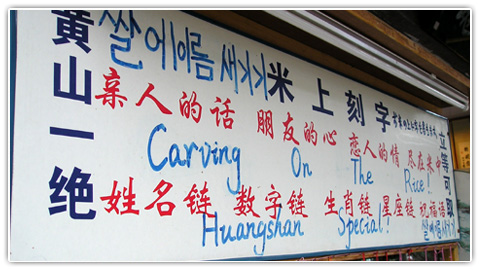 黄山一绝
쌀에이름 새기기
米上刻字
亲人的话 朋友的心 恋人的情 尽在米中
Carving On The Rice!
姓名链 数字链 生肖链 星座链 祝福话
Huangshan Special!
立等可取